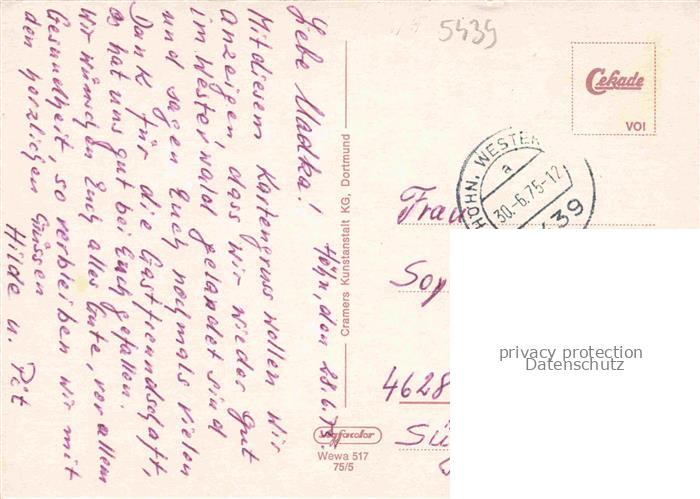 5439
Liebe Madka!
Höhn, den 28.6.75.
Mit diesem Kartengruss wollen wir
Anzeigen, dass wir wieder gut
im Westerwald gelandet sind
und sagen Euch nochmals vielen
Dank für die Gastfreundschaft,
es hat uns gut bei Euch gefallen.
Wir wünschen Euch alles Gute, vor allem
Gesundheit, so verbleiben wir mit
den herzlichen Grüssen
Hilde u. Pit
Cramers Kunstanstalt KG, Dortmund
Cekade
VOI
HÖHN, WESTER
a
30.-6.75-12
439
Frau
Sop
4628
Sü
Wewa 517
75/5
privacy protection
Datenschutz